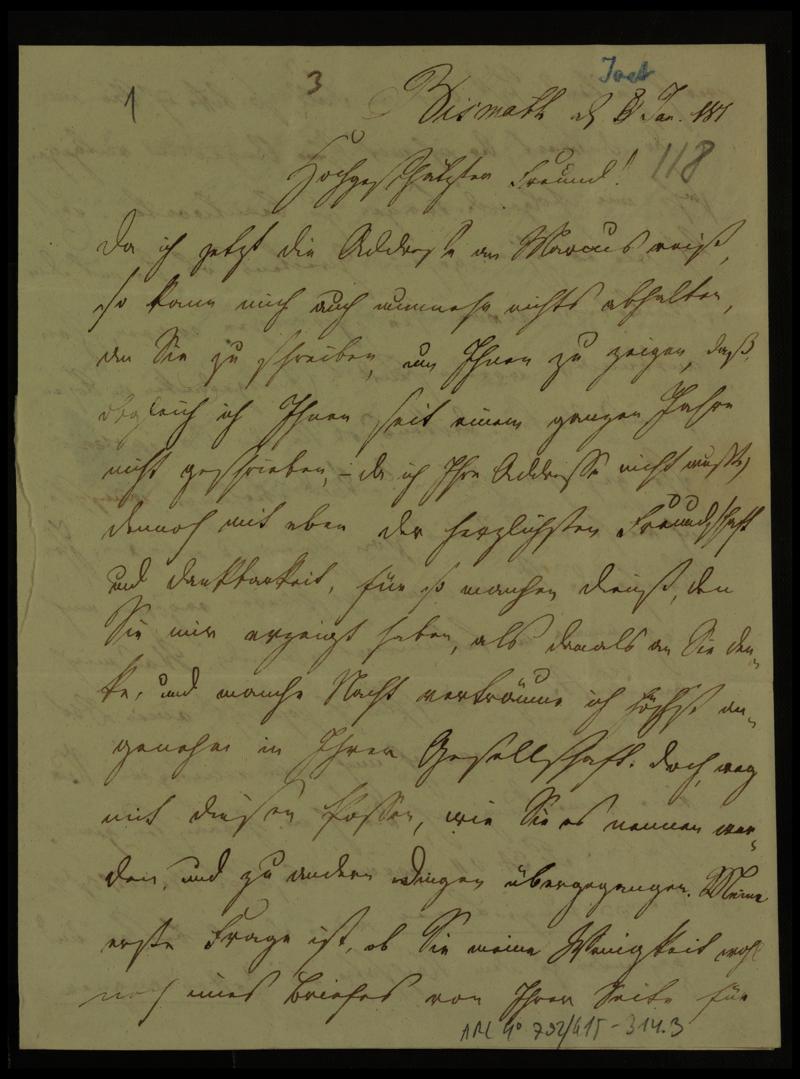 Jost
1
3
Bismark d 3 Jan. 181
118
Hochgeschätzter Freund!
Da ich jetzt die Addresse an Marcus weiß,
so kann mich auch nunmehr nichts abhalten,
an Sie zu schreiben, um Ihnen zu zeigen, daß,
obgleich ich Ihnen seit einem ganzen Jahre
nicht geschrieben, – da ich Ihre Addresse nicht wußte,
dennoch mit eben der herzlichsten Freundschaft
und Dankbarkeit, für so manchen Dienst, den
Sie mir erzeigt haben, als damals an Sie den-
ke, und manche Nacht verträume ich höchst an-
genehm in Ihrer Gesellschaft. Doch weg
mit diesen Possen, wie Sie es nennen wer-
den, und zu andern Dingen übergegangen. Meine
erste Frage ist, ob Sie meine Wenigkeit wohl
noch eines Briefes von Ihrer Seite für
ARC 4° 792/415-314.3